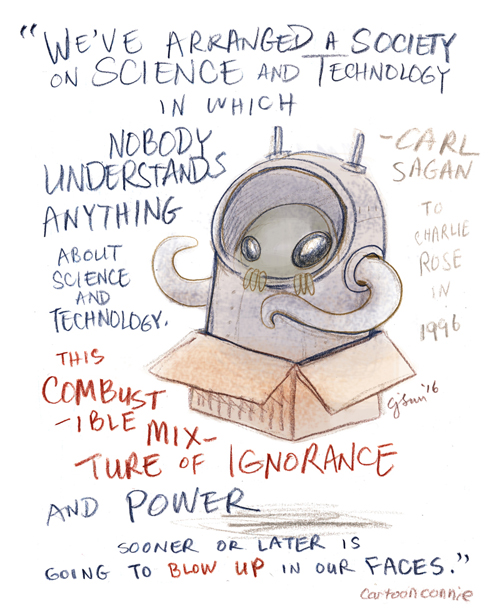 “WE'VE ARRANGED A SOCIETY
ON SCIENCE AND TECHNOLOGY
IN WHICH
NOBODY
UNDERSTANDS
ANYTHING
ABOUT
SCIENCE
AND
TECHNOLOGY.
THIS
COMBUST
-IBLE MIX-
TURE OF IGNORANCE
AND POWER
SOONER OR LATER IS
GOING TO BLOW UP IN OUR FACES.”
-CARL
SAGAN
TO
CHARLIE
ROSE
IN
1996
'16
cartoonconnie